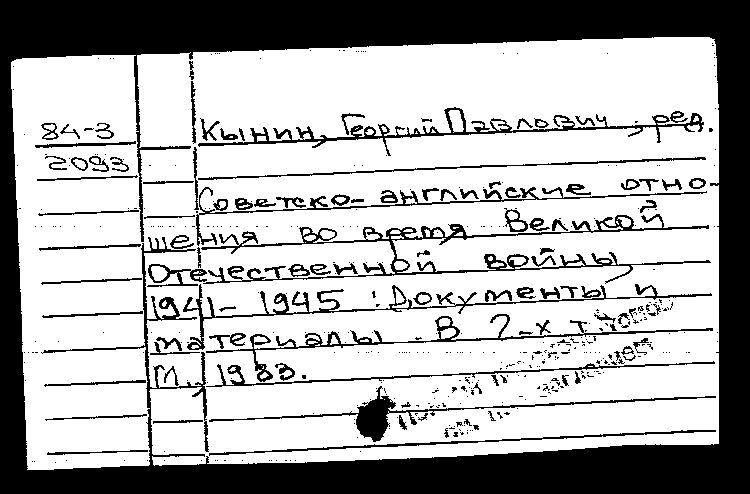 84-3
2093
Кынин, Георгий Павлович, ред.
Советско-английские отно-
шения во время Великой
Отечественной войны,
1941-1945 : Документы и
материалы. В 2-х т.
М., 1983.